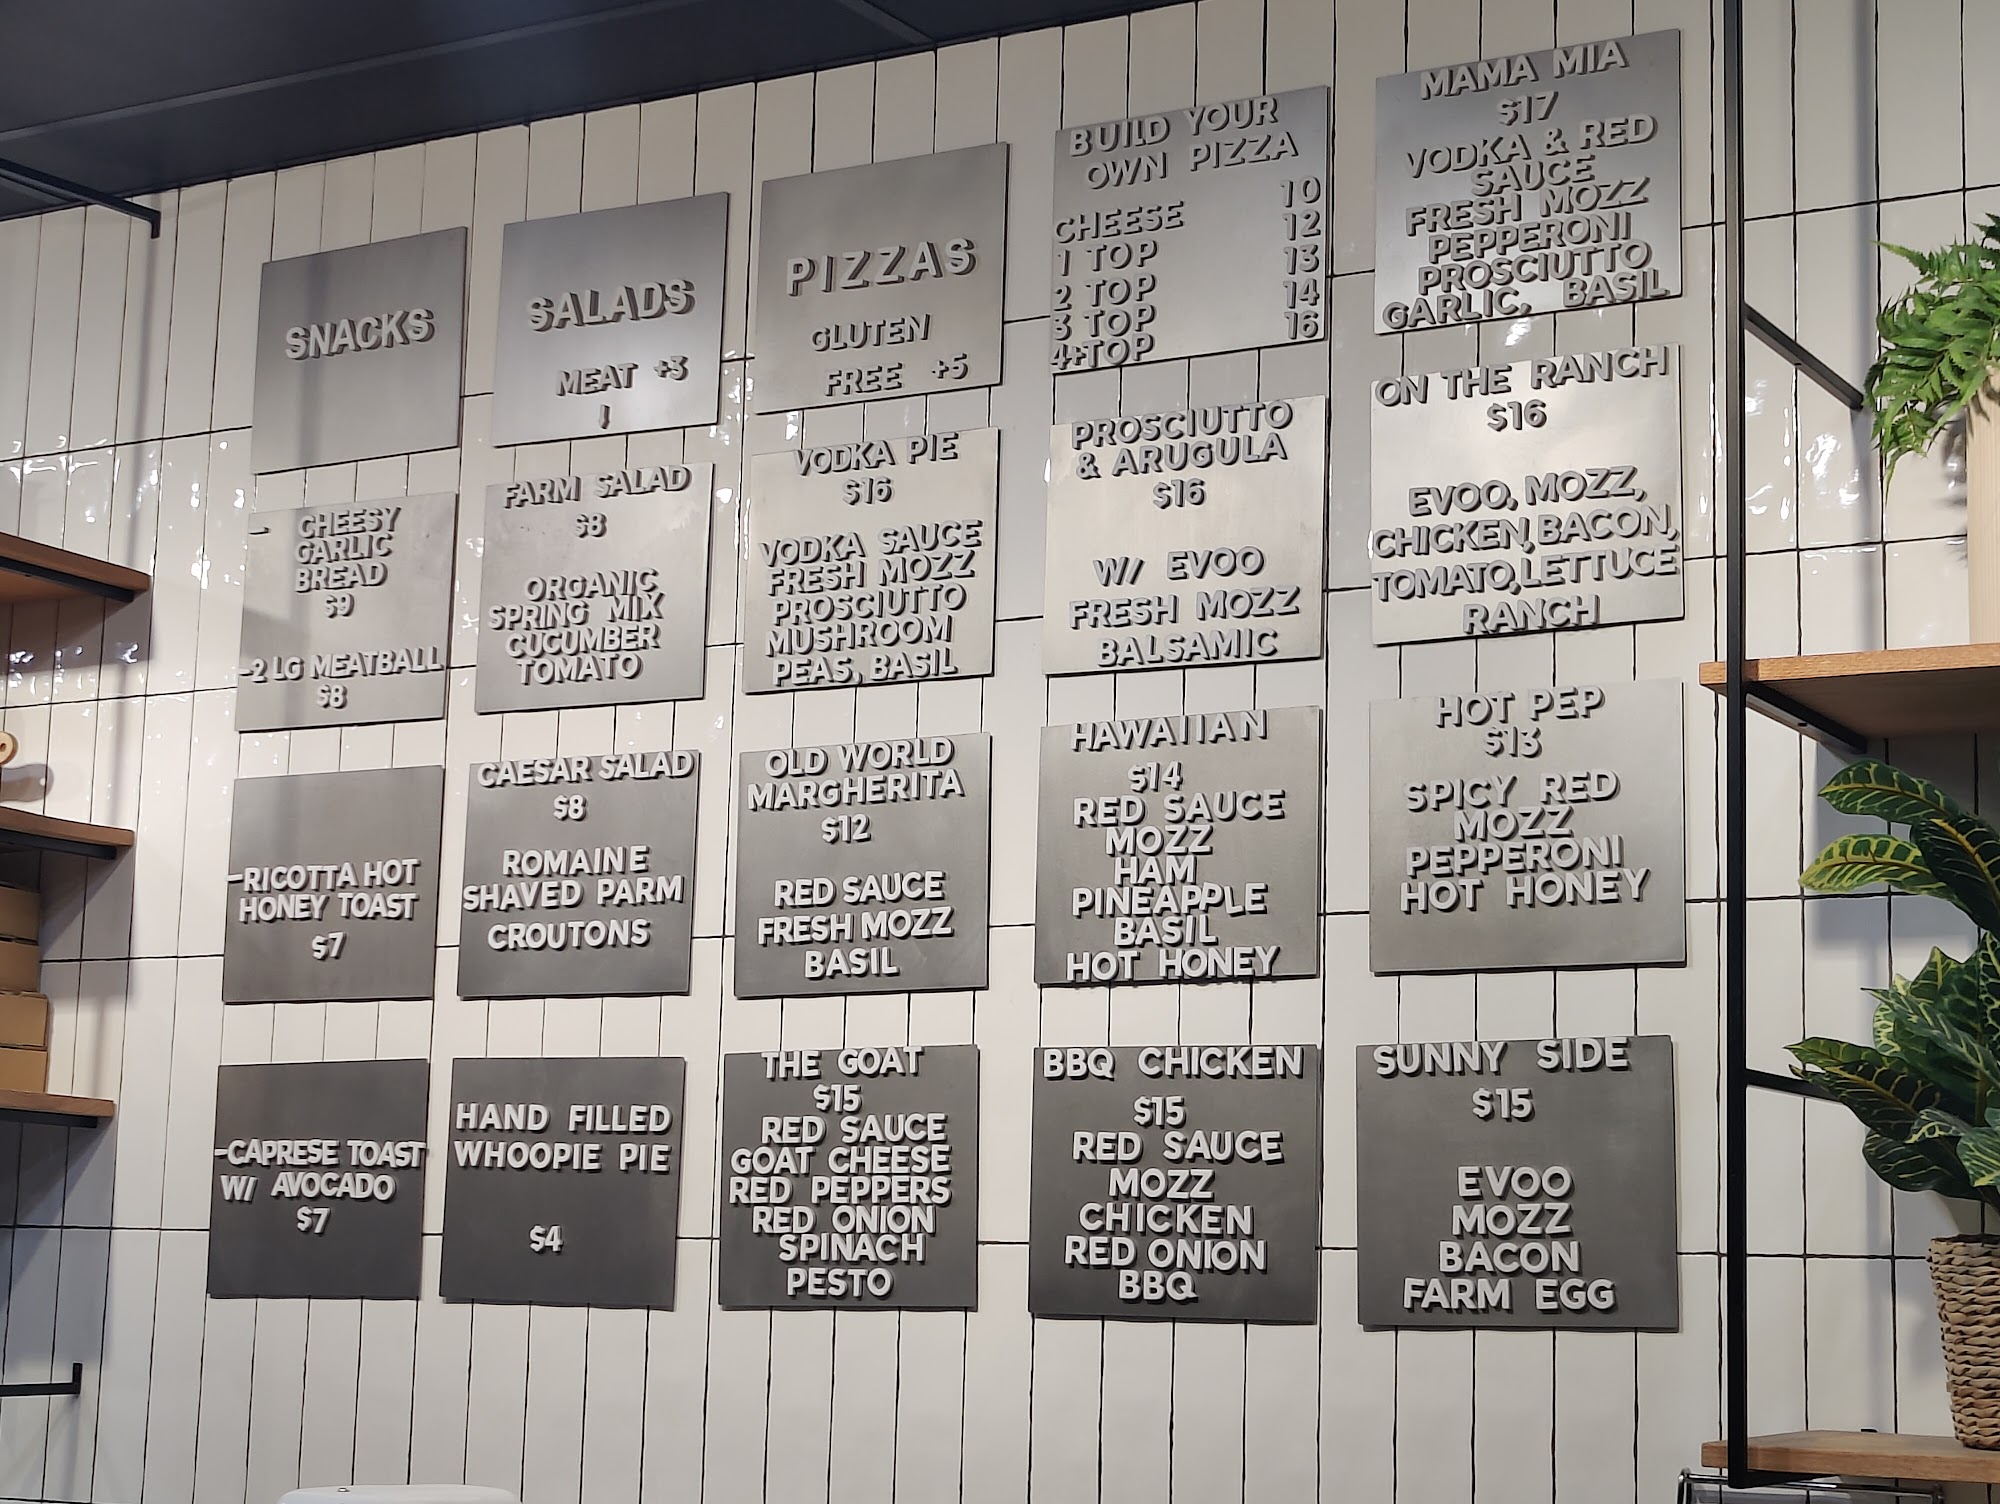 SNACKS
- CHEESY
GARLIC
BREAD
$9
-2 LG MEATBALL
$8
-RICOTTA HOT
HONEY TOAST
$7
-CAPRESE TOAST
W/ AVOCADO
$7
SALADS
MEAT +3
FARM SALAD
$8
ORGANIC
SPRING MIX
CUCUMBER
TOMATO
CAESAR SALAD
$8
ROMAINE
SHAVED PARM
CROUTONS
HAND FILLED
WHOOPIE PIE
$4
PIZZAS
GLUTEN
FREE +5
VODKA PIE
$16
VODKA SAUCE
FRESH MOZZ
PROSCIUTTO
MUSHROOM
PEAS, BASIL
OLD WORLD
MARGHERITA
$12
RED SAUCE
FRESH MOZZ
BASIL
THE GOAT
$15
RED SAUCE
GOAT CHEESE
RED PEPPERS
RED ONION
SPINACH
PESTO
BUILD YOUR
OWN PIZZA
CHEESE 10
1 TOP 12
2 TOP 13
3 TOP 14
4+TOP 16
PROSCIUTTO
& ARUGULA
$16
W/ EVOO
FRESH MOZZ
BALSAMIC
HAWAIIAN
$14
RED SAUCE
MOZZ
HAM
PINEAPPLE
BASIL
HOT HONEY
BBQ CHICKEN
$15
RED SAUCE
MOZZ
CHICKEN
RED ONION
BBQ
MAMA MIA
$17
VODKA & RED
SAUCE
FRESH MOZZ
PEPPERONI
PROSCIUTTO
GARLIC, BASIL
ON THE RANCH
$16
EVOO, MOZZ,
CHICKEN, BACON,
TOMATO, LETTUCE
RANCH
HOT PEP
$13
SPICY RED
MOZZ
PEPPERONI
HOT HONEY
SUNNY SIDE
$15
EVOO
MOZZ
BACON
FARM EGG